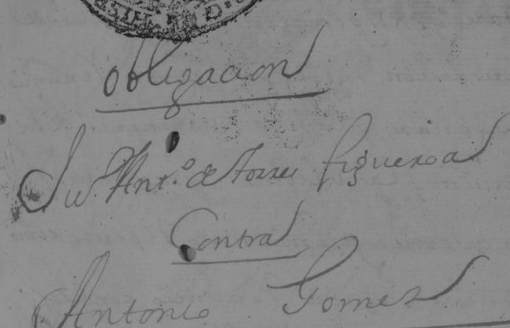 obligacion
Ju. Ant.º de torres figueroa
Contra
Antonio Gomez